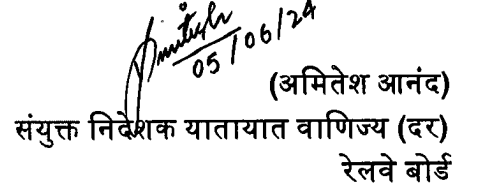 Amitesh
05/06/24
(अमितेश आनंद)
संयुक्त निदेशक यातायात वाणिज्य (दर)
रेलवे बोर्ड